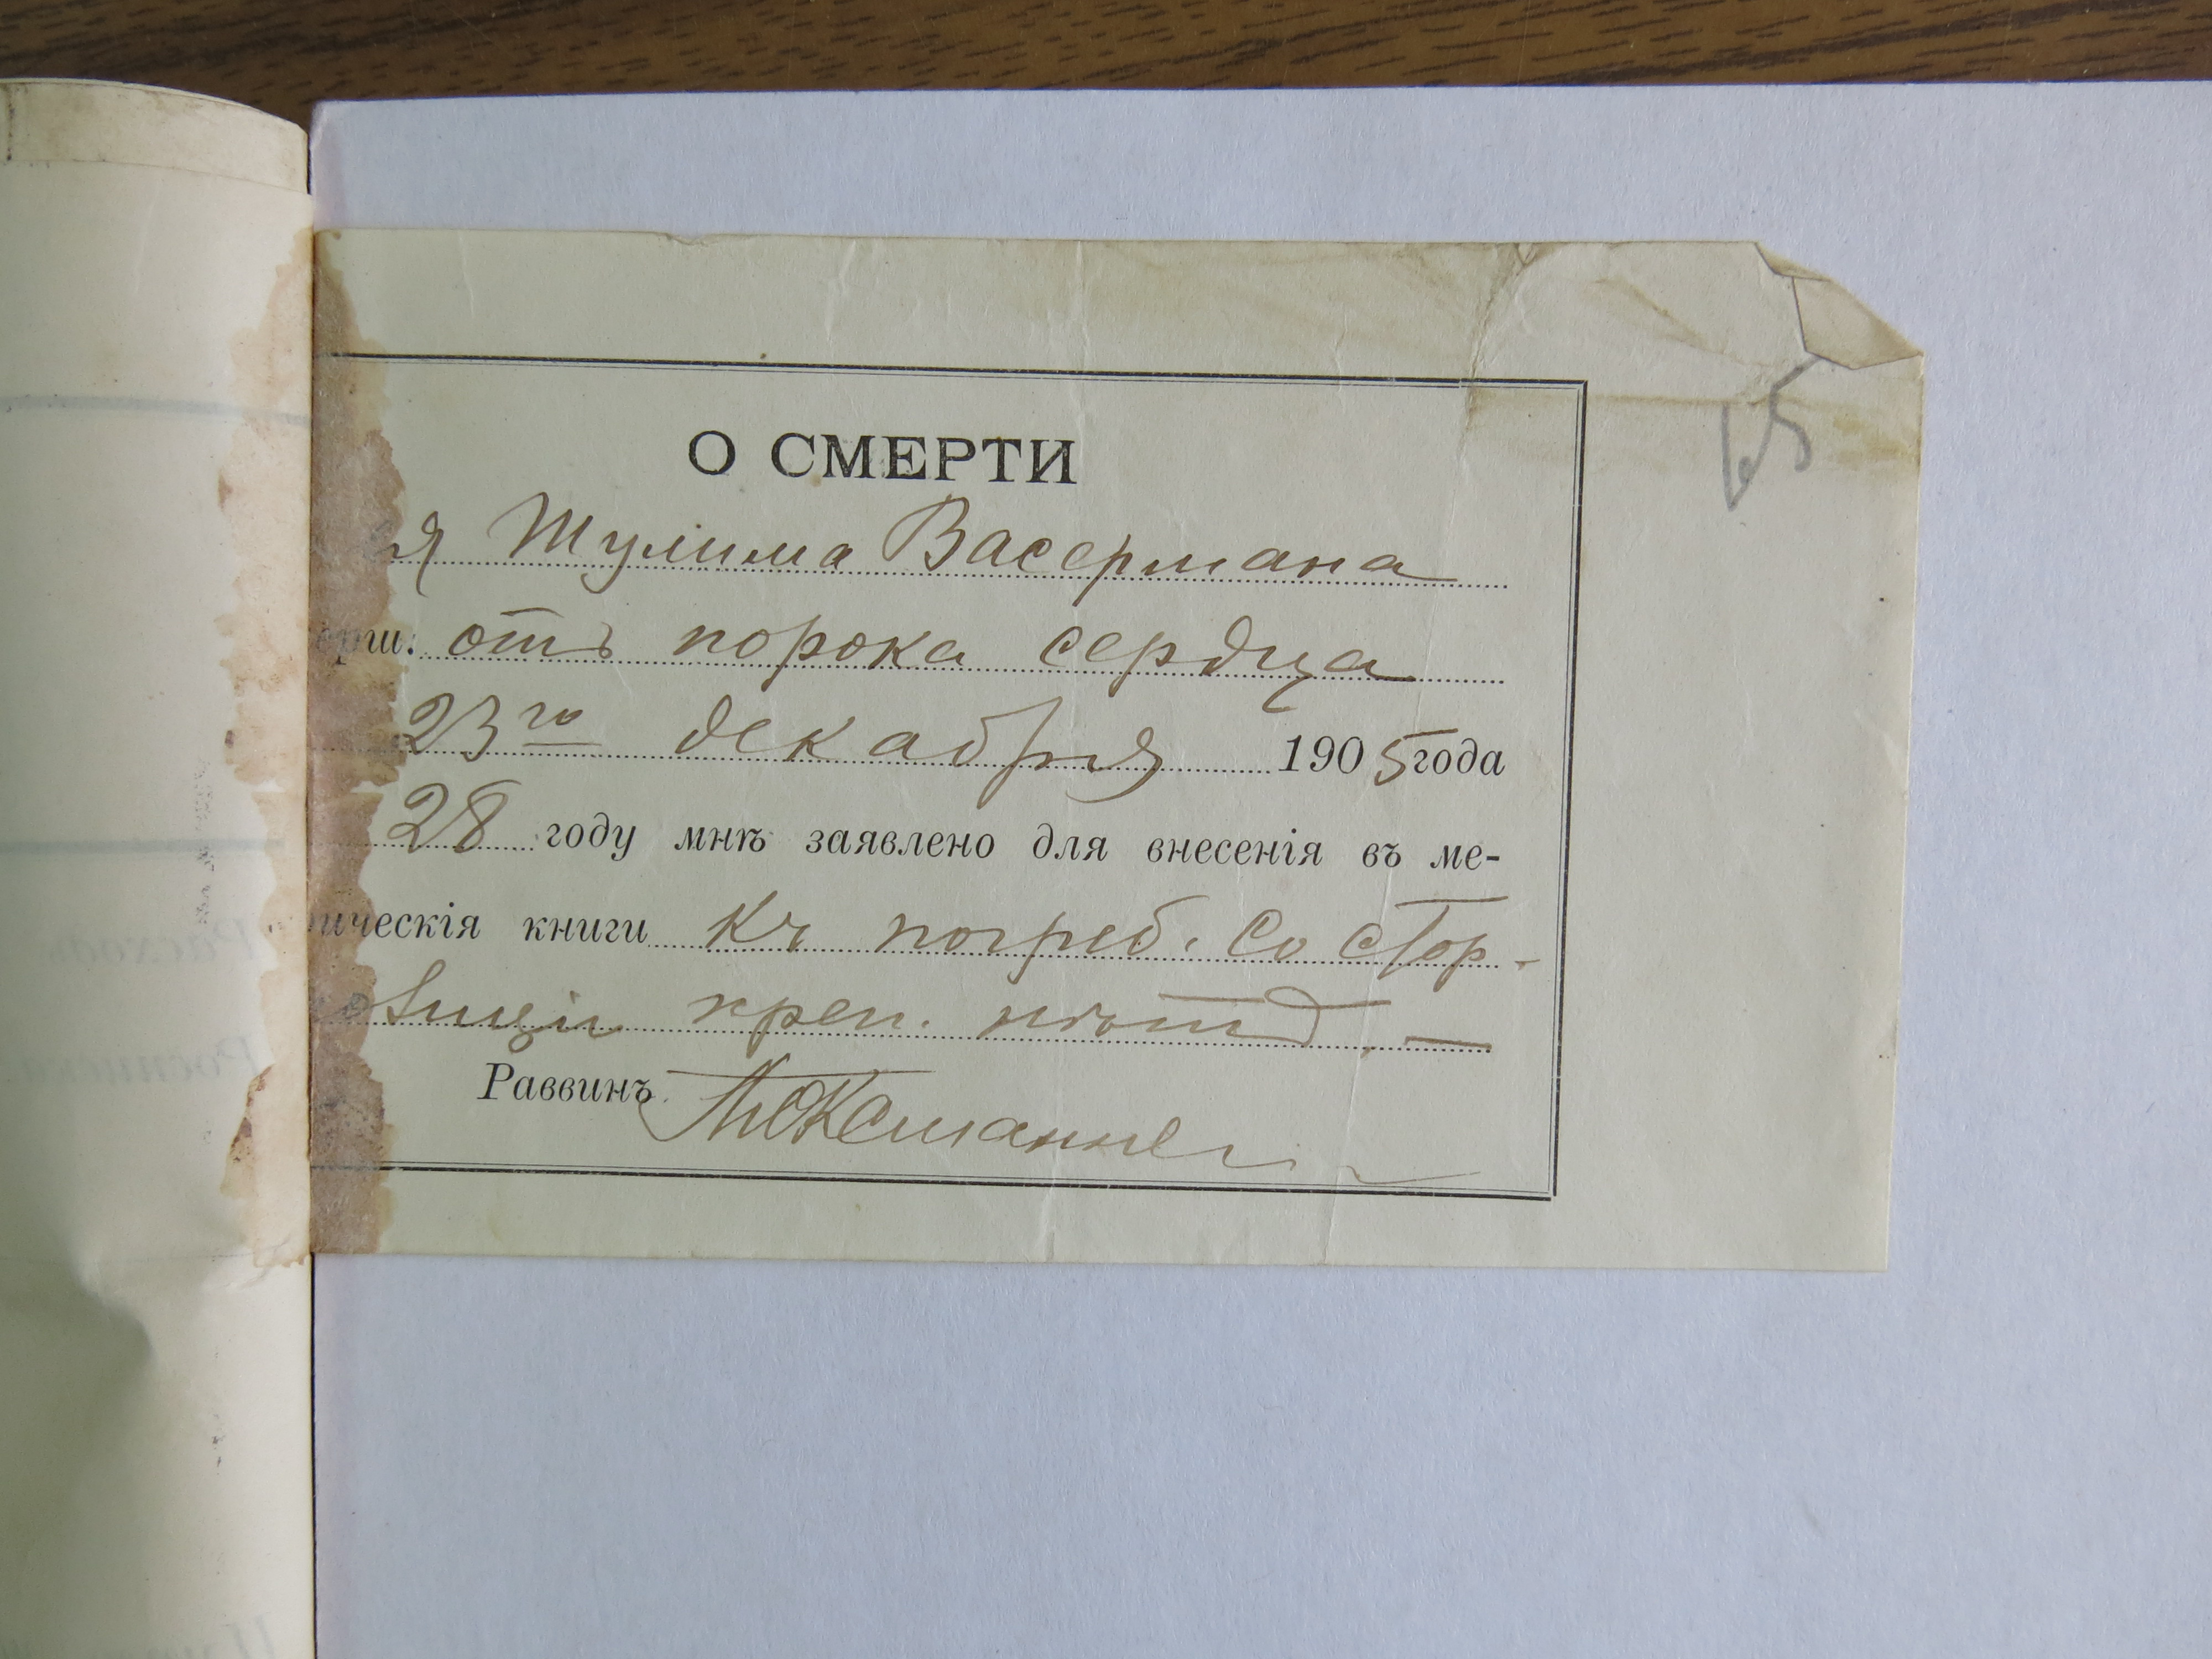 65
О СМЕРТИ
я Шулима Васермана
ерш. отъ порока сердца
23го декабря 1905 года
28 году мнѣ заявлено для внесенія въ ме-
рическія книги къ погреб. со стор.
полиціи преп. нѣтъ. —
Раввинъ
Расходъ
Росписка